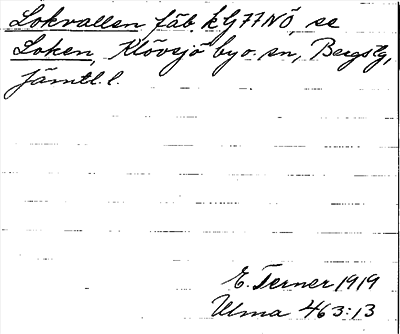 Lokvallen fäb. kG77NÖ, se
Loken, Klövsjö by o. sn, Bergs tg,
Jämtl. l.
E. Terner 1919
Ulma 463:13